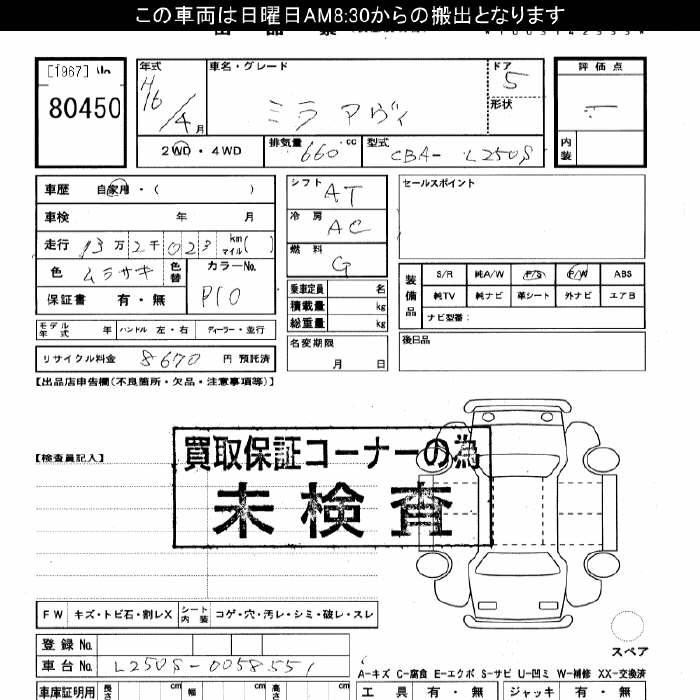 この車両は日曜日AM8:30からの搬出となります
[1967]
80450
年式
H16/4月
車名・グレード
ミラ アヴィ
ドア
5
形状
評価点
内装
2WD・4WD
排気量
660 cc
型式
CBA- L250S
車歴 自家用・( )
車検 年 月
走行 13万2千023 km マイル( )
色 ムラサキ 色替
カラーNo.
P10
保証書 有・無
シフト
AT
冷房
AC
燃料
G
乗車定員 名
積載量 kg
総重量 kg
セールスポイント
装備品
S/R 純A/W P/S P/W ABS
純TV 純ナビ 革シート 外ナビ エアB
ナビ型番:
モデル年式 年 ハンドル 左・右 ディーラー・並行
名変期限
月 日
後日品
リサイクル料金 8670 円 預託済
【出品店申告欄(不良箇所・欠品・注意事項等)】
【検査員記入】
買取保証コーナーの為
未検査
FW キズ・トビ石・割レX シート内装 コゲ・穴・汚レ・シミ・破レ・スレ
スペア
登録No.
車台No. L250S-0058551
A-キズ C-腐食 E-エクボ S-サビ U-凹ミ W-補修 XX-交換済
車庫証明用 長さ cm 幅 cm 高さ cm
工具 有・無 ジャッキ 有・無